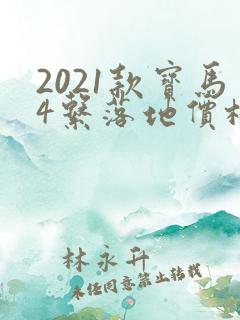 2021款寶馬
4繫落地價格
林永升
未經同意禁止轉載